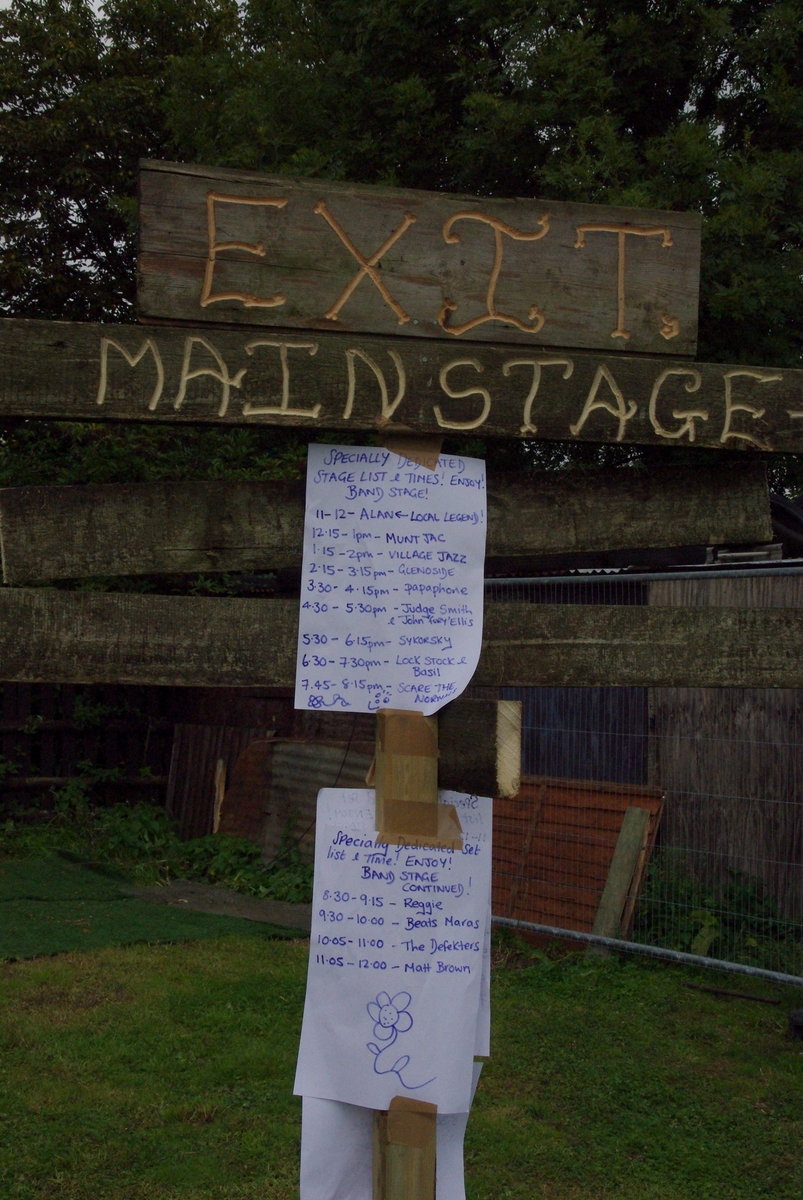 EXIT.
MAIN STAGE-
SPECIALLY DEDICATED
STAGE LIST & TIMES! ENJOY!
BAND STAGE!
11-12- ALAN← LOCAL LEGEND!
12.15-1pm- MUNTJAC
1.15-2pm- VILLAGE JAZZ
2.15-3.15pm- GLENOSIDE
3.30- 4.15pm- Papaphone
4.30- 5.30pm- Judge Smith
& John 'Fury' Ellis
5.30- 6.15pm- SYKORSKY
6.30-7.30pm- LOCK STOCK &
Basil
7.45- 8.15pm- SCARE THE
Specially Dedicated Set
list & Time! ENJOY!
BAND STAGE
CONTINUED!
8.30-9.15- Reggie
9.30-10.00- Beats Maras
10.05-11.00- The Defekters
11.05-12.00- Matt Brown